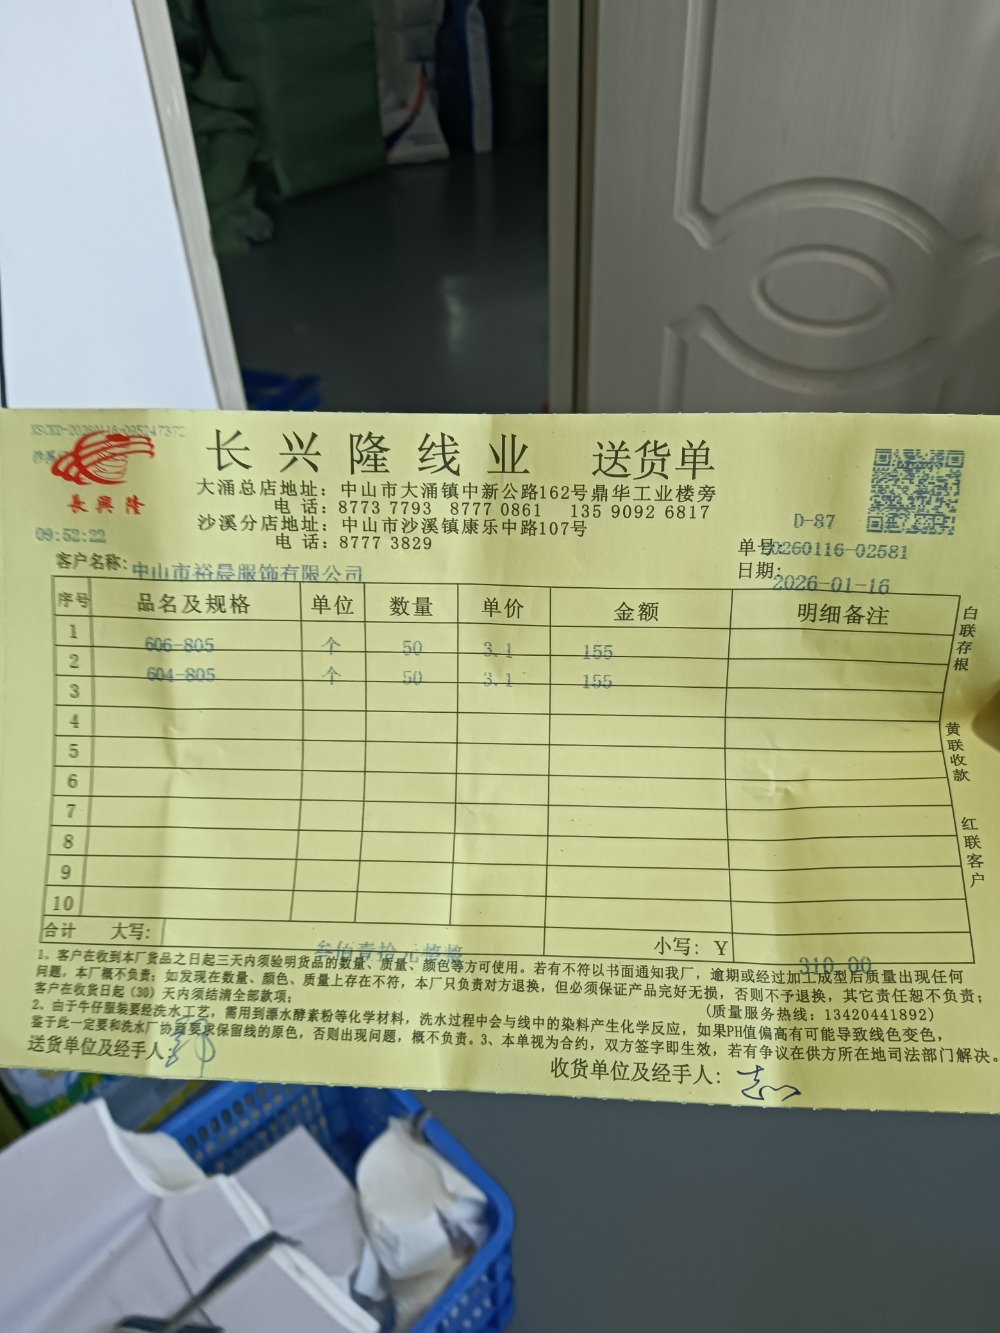 XSCKD-20260116-095247372
長興隆
长兴隆线业 送货单
大涌总店地址：中山市大涌镇中新公路162号鼎华工业楼旁
电 话：8773 7793 8777 0861 135 9092 6817
沙溪分店地址：中山市沙溪镇康乐中路107号
电 话：8777 3829
09:52:22
D-87
单号:20260116-02581
客户名称: 中山市裕晟服饰有限公司
日期: 2026-01-16
序号 品名及规格 单位 数量 单价 金额 明细备注
1 606-805 个 50 3.1 155
2 604-805 个 50 3.1 155
3
4
5
6
7
8
9
10
合计 大写: 叁佰壹拾元整整 小写: Y 310.00
白联存根
黄联收款
红联客户
1、客户在收到本厂货品之日起三天内须验明货品的数量、质量、颜色等方可使用。若有不符以书面通知我厂，逾期或经过加工成型后质量出现任何
问题，本厂概不负责；如发现在数量、颜色、质量上存在不符，本厂只负责对方退换，但必须保证产品完好无损，否则不予退换，其它责任恕不负责；
客户在收货日起（30）天内须结清全部款项；
(质量服务热线：13420441892)
2、由于牛仔服装要经洗水工艺，需用到漂水酵素粉等化学材料，洗水过程中会与线中的染料产生化学反应，如果PH值偏高有可能导致线色变色，
鉴于此一定要和洗水厂协商要求保留线的原色，否则出现问题，概不负责。3、本单视为合约，双方签字即生效，若有争议在供方所在地司法部门解决。
送货单位及经手人：
收货单位及经手人：